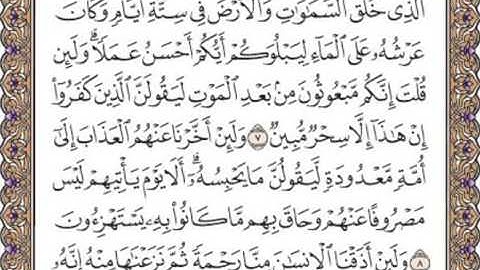 ٱلَّذِى خَلَقَ ٱلسَّمَٰوَٰتِ وَٱلْأَرْضَ فِى سِتَّةِ أَيَّامٍ وَكَانَ
عَرْشُهُۥ عَلَى ٱلْمَآءِ لِيَبْلُوَكُمْ أَيُّكُمْ أَحْسَنُ عَمَلًا ۗ وَلَئِن
قُلْتَ إِنَّكُم مَّبْعُوثُونَ مِنۢ بَعْدِ ٱلْمَوْتِ لَيَقُولَنَّ ٱلَّذِينَ كَفَرُوٓا۟
إِنْ هَٰذَآ إِلَّا سِحْرٌ مُّبِينٌ ٧ وَلَئِنْ أَخَّرْنَا عَنْهُمُ ٱلْعَذَابَ إِلَىٰٓ
أُمَّةٍ مَّعْدُودَةٍ لَّيَقُولُنَّ مَا يَحْبِسُهُۥٓ ۗ أَلَا يَوْمَ يَأْتِيهِمْ لَيْسَ
مَصْرُوفًا عَنْهُمْ وَحَاقَ بِهِم مَّا كَانُوا۟ بِهِۦ يَسْتَهْزِءُونَ
٨ وَلَئِنْ أَذَقْنَا ٱلْإِنسَٰنَ مِنَّا رَحْمَةً ثُمَّ نَزَعْنَٰهَا مِنْهُ إِنَّهُۥ